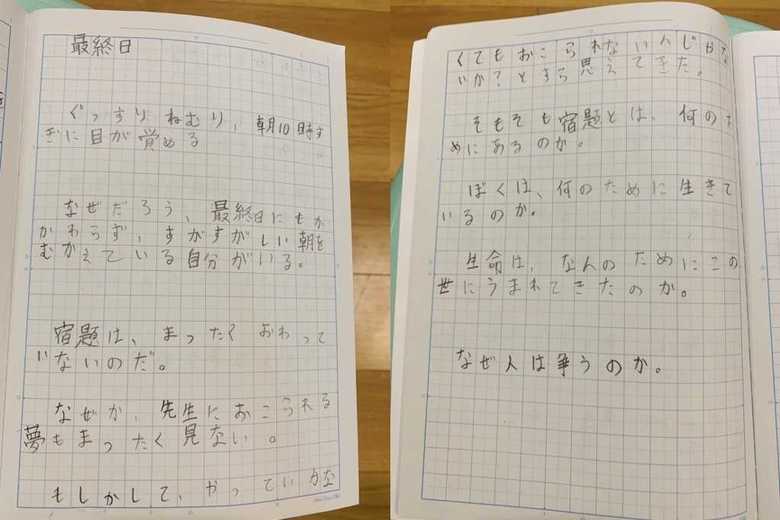 最終日
ぐっすりねむり、朝10時す
ぎに目が覚める
なぜだろう、最終日にもか
かわらず、すがすがしい朝を
むかえている自分がいる。
宿題は、まったくおわって
いないのだ。
なぜか、先生におこられる
夢もまったく見ない。
もしかして、やっていかな
くてもおこられないんじゃな
いか?とすら思えてきた。
そもそも宿題とは、何のた
めにあるのか。
ぼくは、何のために生きて
いるのか。
生命は、なんのためにこの
世にうまれてきたのか。
なぜ人は争うのか。